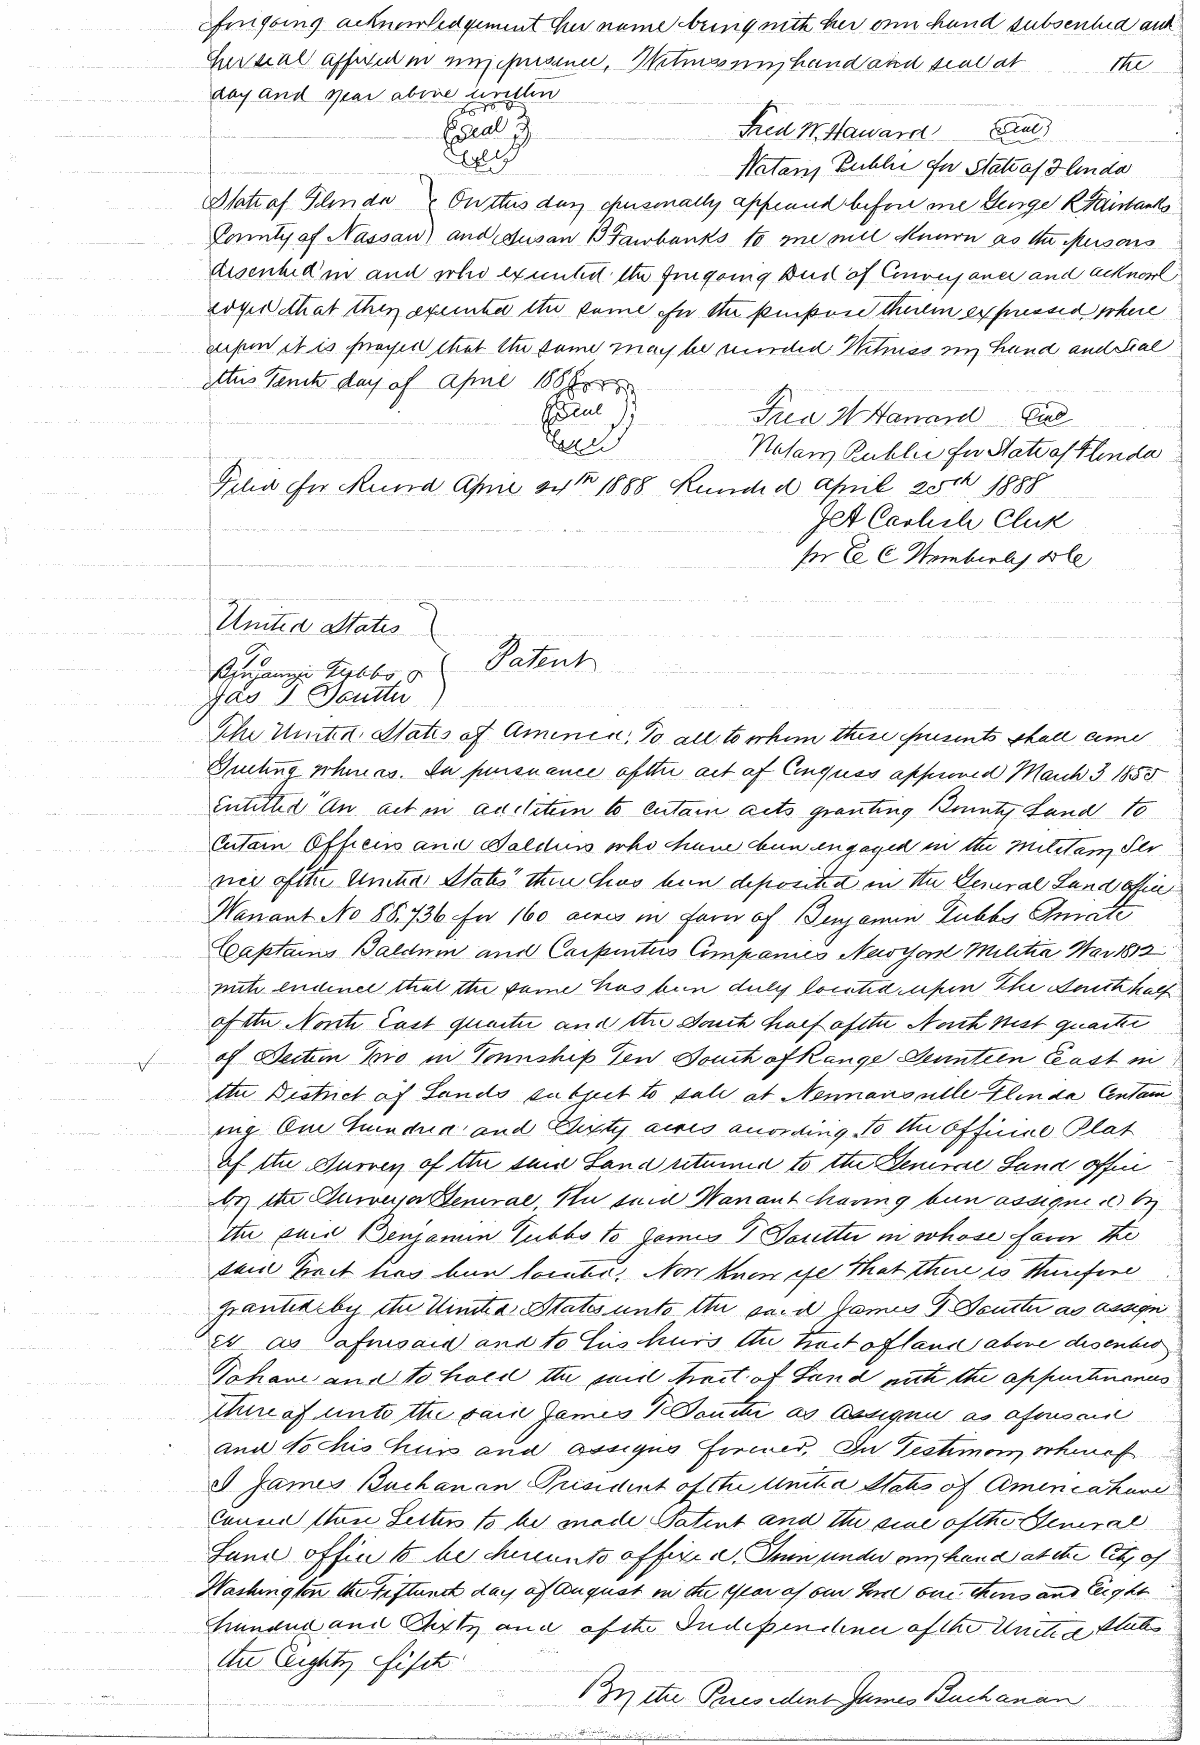 foregoing acknowledgement her name being with her own hand subscribed and
her seal affixed in my presence. Witness my hand and seal at the
day and year above written
Seal Fred W. Haward Seal
Notary Public for State of Florida
State of Florida } On this day personally appeared before me George R Fairbanks
County of Nassau } and Susan B Fairbanks to me well known as the persons
described in and who executed the foregoing Deed of Conveyance and acknowl
edged that they executed the same for the purpose therein expressed, where
upon it is prayed that the same may be recorded Witness my hand and Seal
this Tenth day of April 1888
Seal Fred W Haward Seal
Notary Public for State of Florida
Filed for Record April 24th 1888 Recorded April 25th 1888
J A Carlisle Clerk
pr E C Wimberly D C
United States
To
Benjamin Tubbs & } Patent
Jas T Soutter
The United States of America, To all to whom these presents shall come
Greeting whereas. In pursuance of the act of Congress approved March 3 1855
Entitled "An act in addition to certain acts granting Bounty Land to
Certain Officers and Soldiers who have been engaged in the Military Ser
vice of the United States" there has been deposited in the General Land office
Warrant No 88.736 for 160 acres in favor of Benjamin Tubbs Private
Captains Baldwin and Carpenters Companies New York Militia War 1812
with evidence that the same has been duly located upon The South half
of the North East quarter and the South half of the North West quarter
of Section Two in Township Ten South of Range Seventeen East in
the District of Lands subject to sale at Newnansville Florida Contain
ing One hundred and Sixty acres according to the official Plat
of the Survey of the said Land returned to the General Land office
by the Surveyor General, The said Warrant having been assigned by
the said Benjamin Tubbs to James T Soutter in whose favor the
said Tract has been located, Now Know ye that there is therefore
granted by the United States unto the said James T Soutter as assign
ee as aforesaid and to his heirs the tract of land above described
To have and to hold the said tract of Land with the appurtenances
thereof unto the said James T Soutter as assignee as aforesaid
and to his heirs and assigns forever, In Testimony whereof
I James Buchanan President of the United States of America have
caused these Letters to be made Patent and the seal of the General
Land office to be hereunto affixed. Given under my hand at the City of
Washington the Fifteenth day of August in the year of our Lord one thousand Eight
hundred and Sixty and of the Independence of the United States
the Eighty fifth
By the President James Buchanan